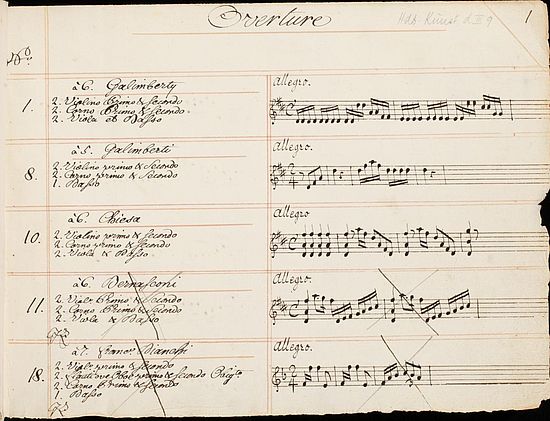 Overture
1
No
à 6. Galimberty
Allegro.
1.
2. Violino Primo & Secondo
2. Corno Primo & Secondo
2. Viola et Basso
à 5. Galimberti
Allegro.
8.
2. Violino primo & Secondo
2. Corno primo & Secondo
1. Basso
à 6. Chiesa
Allegro
10.
2. Violino primo & Secondo
2. Corno primo & Secondo
2. Viola & Basso
à 6. Bernasconi
Allegro.
11.
2. Viol: Primo & Secondo
2. Corno Primo & Secondo
2. Viola & Basso
à 7.
Allegro.
18.
2. Viol: primo & Secondo
primo & Secondo
2. Corno Primo & Secondo
1. Basso